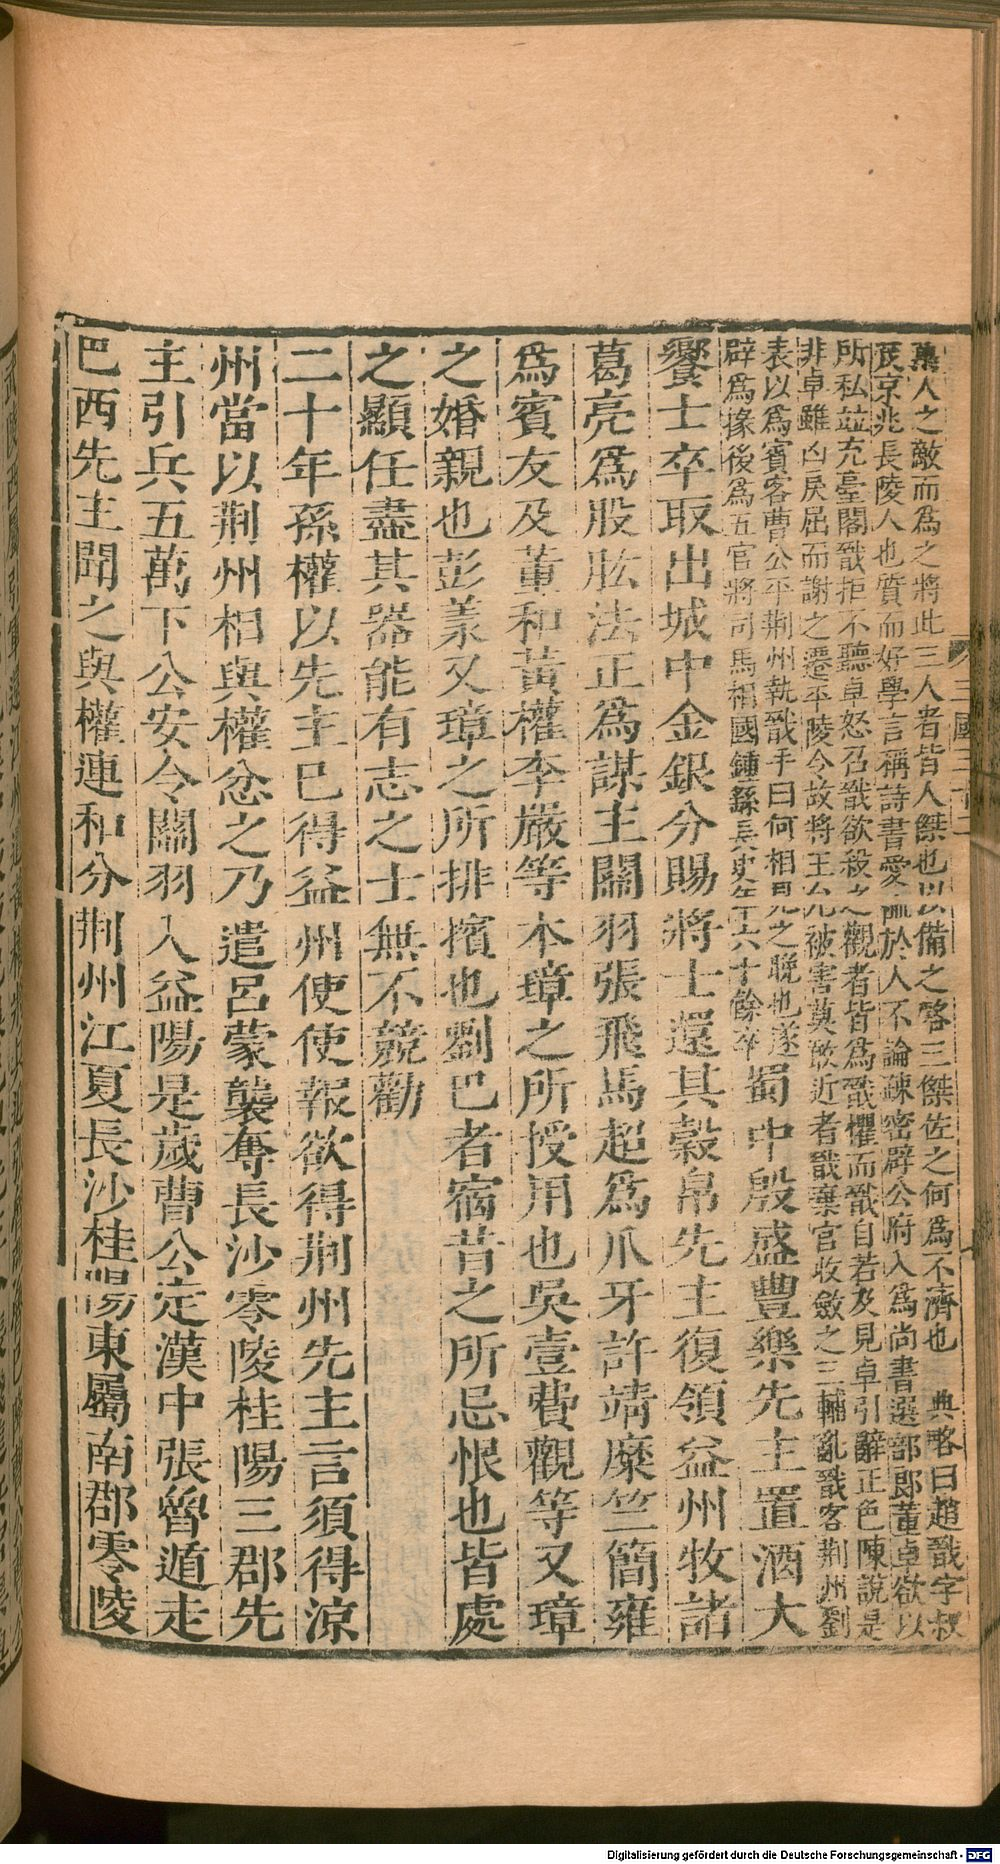 萬人之敵而爲之將此三人者皆人傑也以備之畧三傑佐之何爲不濟也　典略曰趙戩字叔
茂京兆長陵人也質而好學言稱詩書愛恤於人不論疎密辟公府入爲尚書選部郎董卓欲以
所私竝充臺閣戩拒不聽卓怒召戩欲殺之觀者皆爲戩懼而戩自若及見卓引辭正色陳說是
非卓雖凶戾屈而謝之遷平陵令故將王允被害莫敢近者戩棄官收斂之三輔亂戩客荆州劉
表以爲賓客曹公平荆州執戩手曰何相見之晚也遂
辟爲掾後爲五官將司馬相國鍾繇長史年六十餘卒
蜀中殷盛豐樂先主置酒大
饗士卒取出城中金銀分賜將士還其穀帛先主復領益州牧諸
葛亮爲股肱法正爲謀主關羽張飛馬超爲爪牙許靖糜竺簡雍
爲賓友及董和黃權李嚴等本璋之所授用也吳壹費觀等又璋
之婚親也彭羕又璋之所排擯也劉巴者宿昔之所忌恨也皆處
之顯任盡其器能有志之士無不競勸
二十年孫權以先主已得益州使使報欲得荆州先主言須得涼
州當以荆州相與權忿之乃遣呂蒙襲奪長沙零陵桂陽三郡先
主引兵五萬下公安令關羽入益陽是歲曹公定漢中張魯遁走
巴西先主聞之與權連和分荆州江夏長沙桂陽東屬南郡零陵
三國三十二
Digitalisierung gefördert durch die Deutsche Forschungsgemeinschaft - DFG